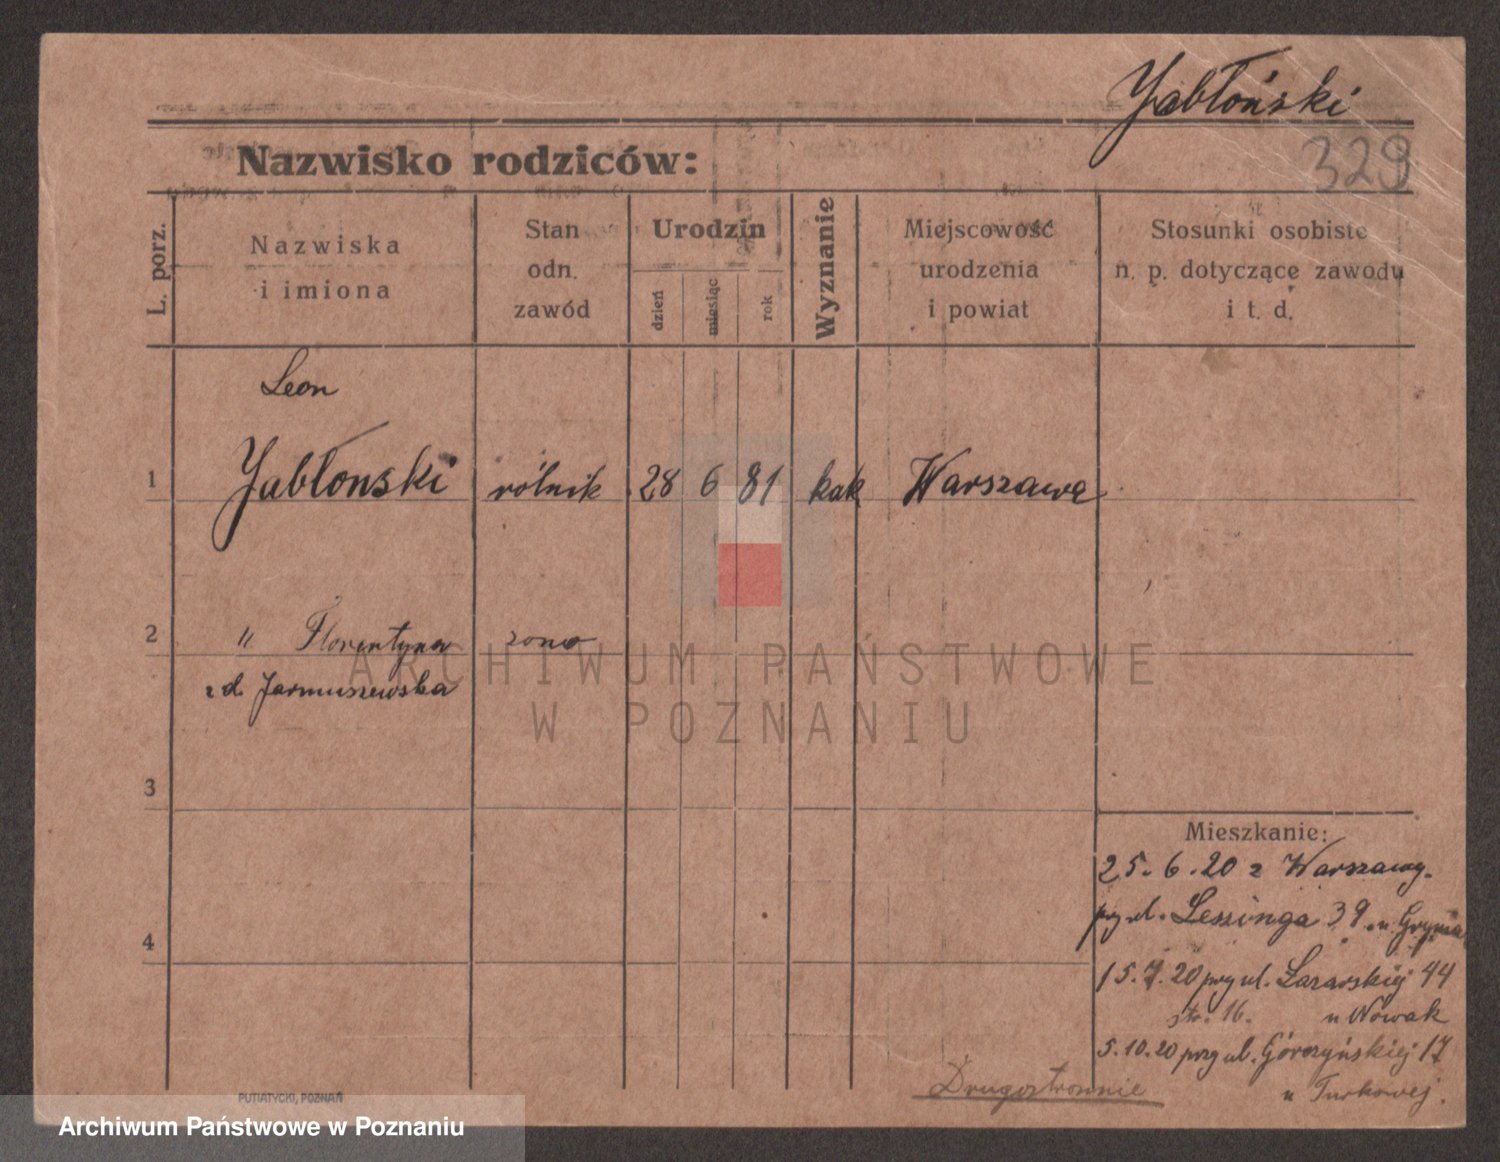 Jabłoński
329
Nazwisko rodziców:
L. porz.
Nazwiska
i imiona
Stan
odn.
zawód
Urodzin
dzień
miesiąc
rok
Wyznanie
Miejscowość
urodzenia
i powiat
Stosunki osobiste
n. p. dotyczące zawodu
i t. d.
Leon
1 Jabłonski rólnik 28 6 81 kak Warszawa
2 " Florentyna zona
z d. Jarmuszewska
3
4
Mieszkanie:
25. 6. 20 z Warszawy.
przy ul. Lessinga 39. u
15. 7. 20 przy ul. Łazarskiej 44
str. 16. u Nowak
5. 10. 20 przy ul. Górczyńskiej 17
u Turkowej.
Drugostronnie
PUTIATYCKI, POZNAŃ
ARCHIWUM PAŃSTWOWE
W POZNANIU
Archiwum Państwowe w Poznaniu